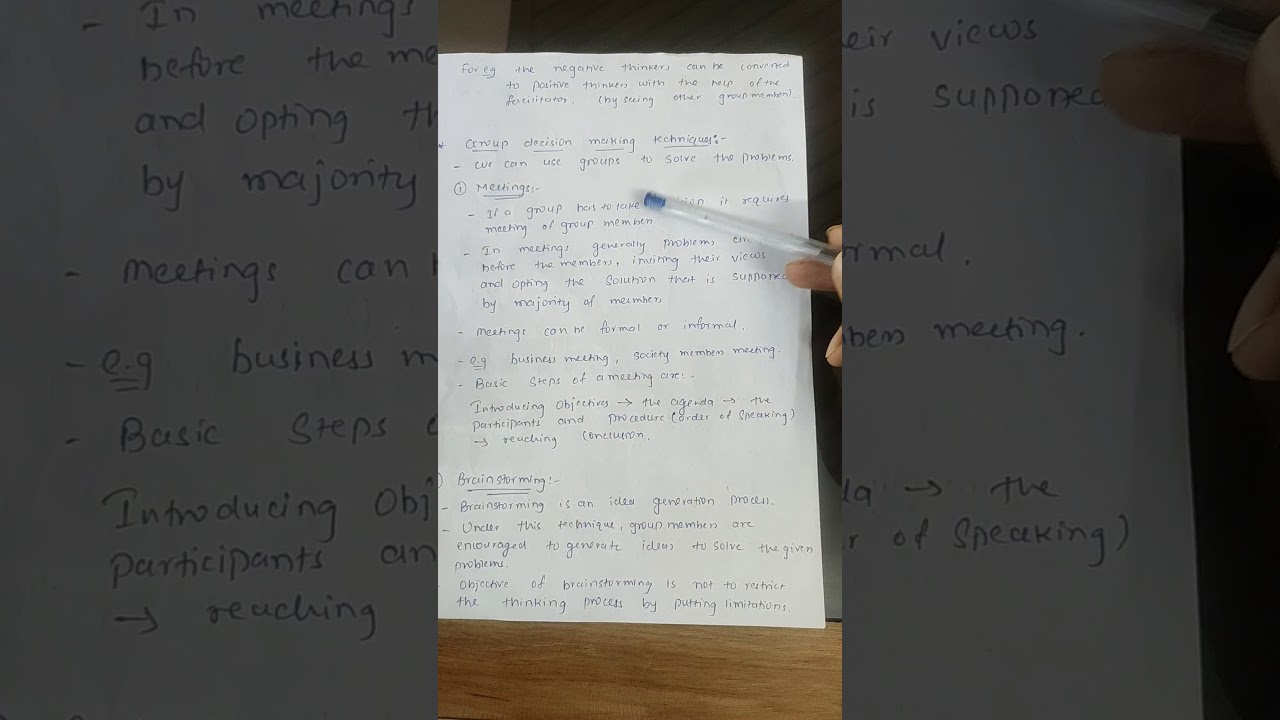 For eg the negative thinkers can be converted
to positive thinkers with the help of the
facilitator. (by seeing other group members).
Group decision making techniques:-
- we can use groups to solve the problems.
① Meetings:-
- If a group has to take it requires
meeting of group members.
- In meetings generally problems
before the members, inviting their views
and opting the solution that is supported
by majority of members.
- Meetings can be formal or informal.
- e.g business meeting, society members meeting.
- Basic steps of a meeting are:-
Introducing Objectives → the agenda → the
participants and procedure (order of speaking)
→ reaching conclusion.
Brainstorming:-
- Brainstorming is an idea generation process.
- Under this technique, group members are
encouraged to generate ideas to solve the given
problems.
- Objective of brainstorming is not to restrict
the thinking process by putting limitations.